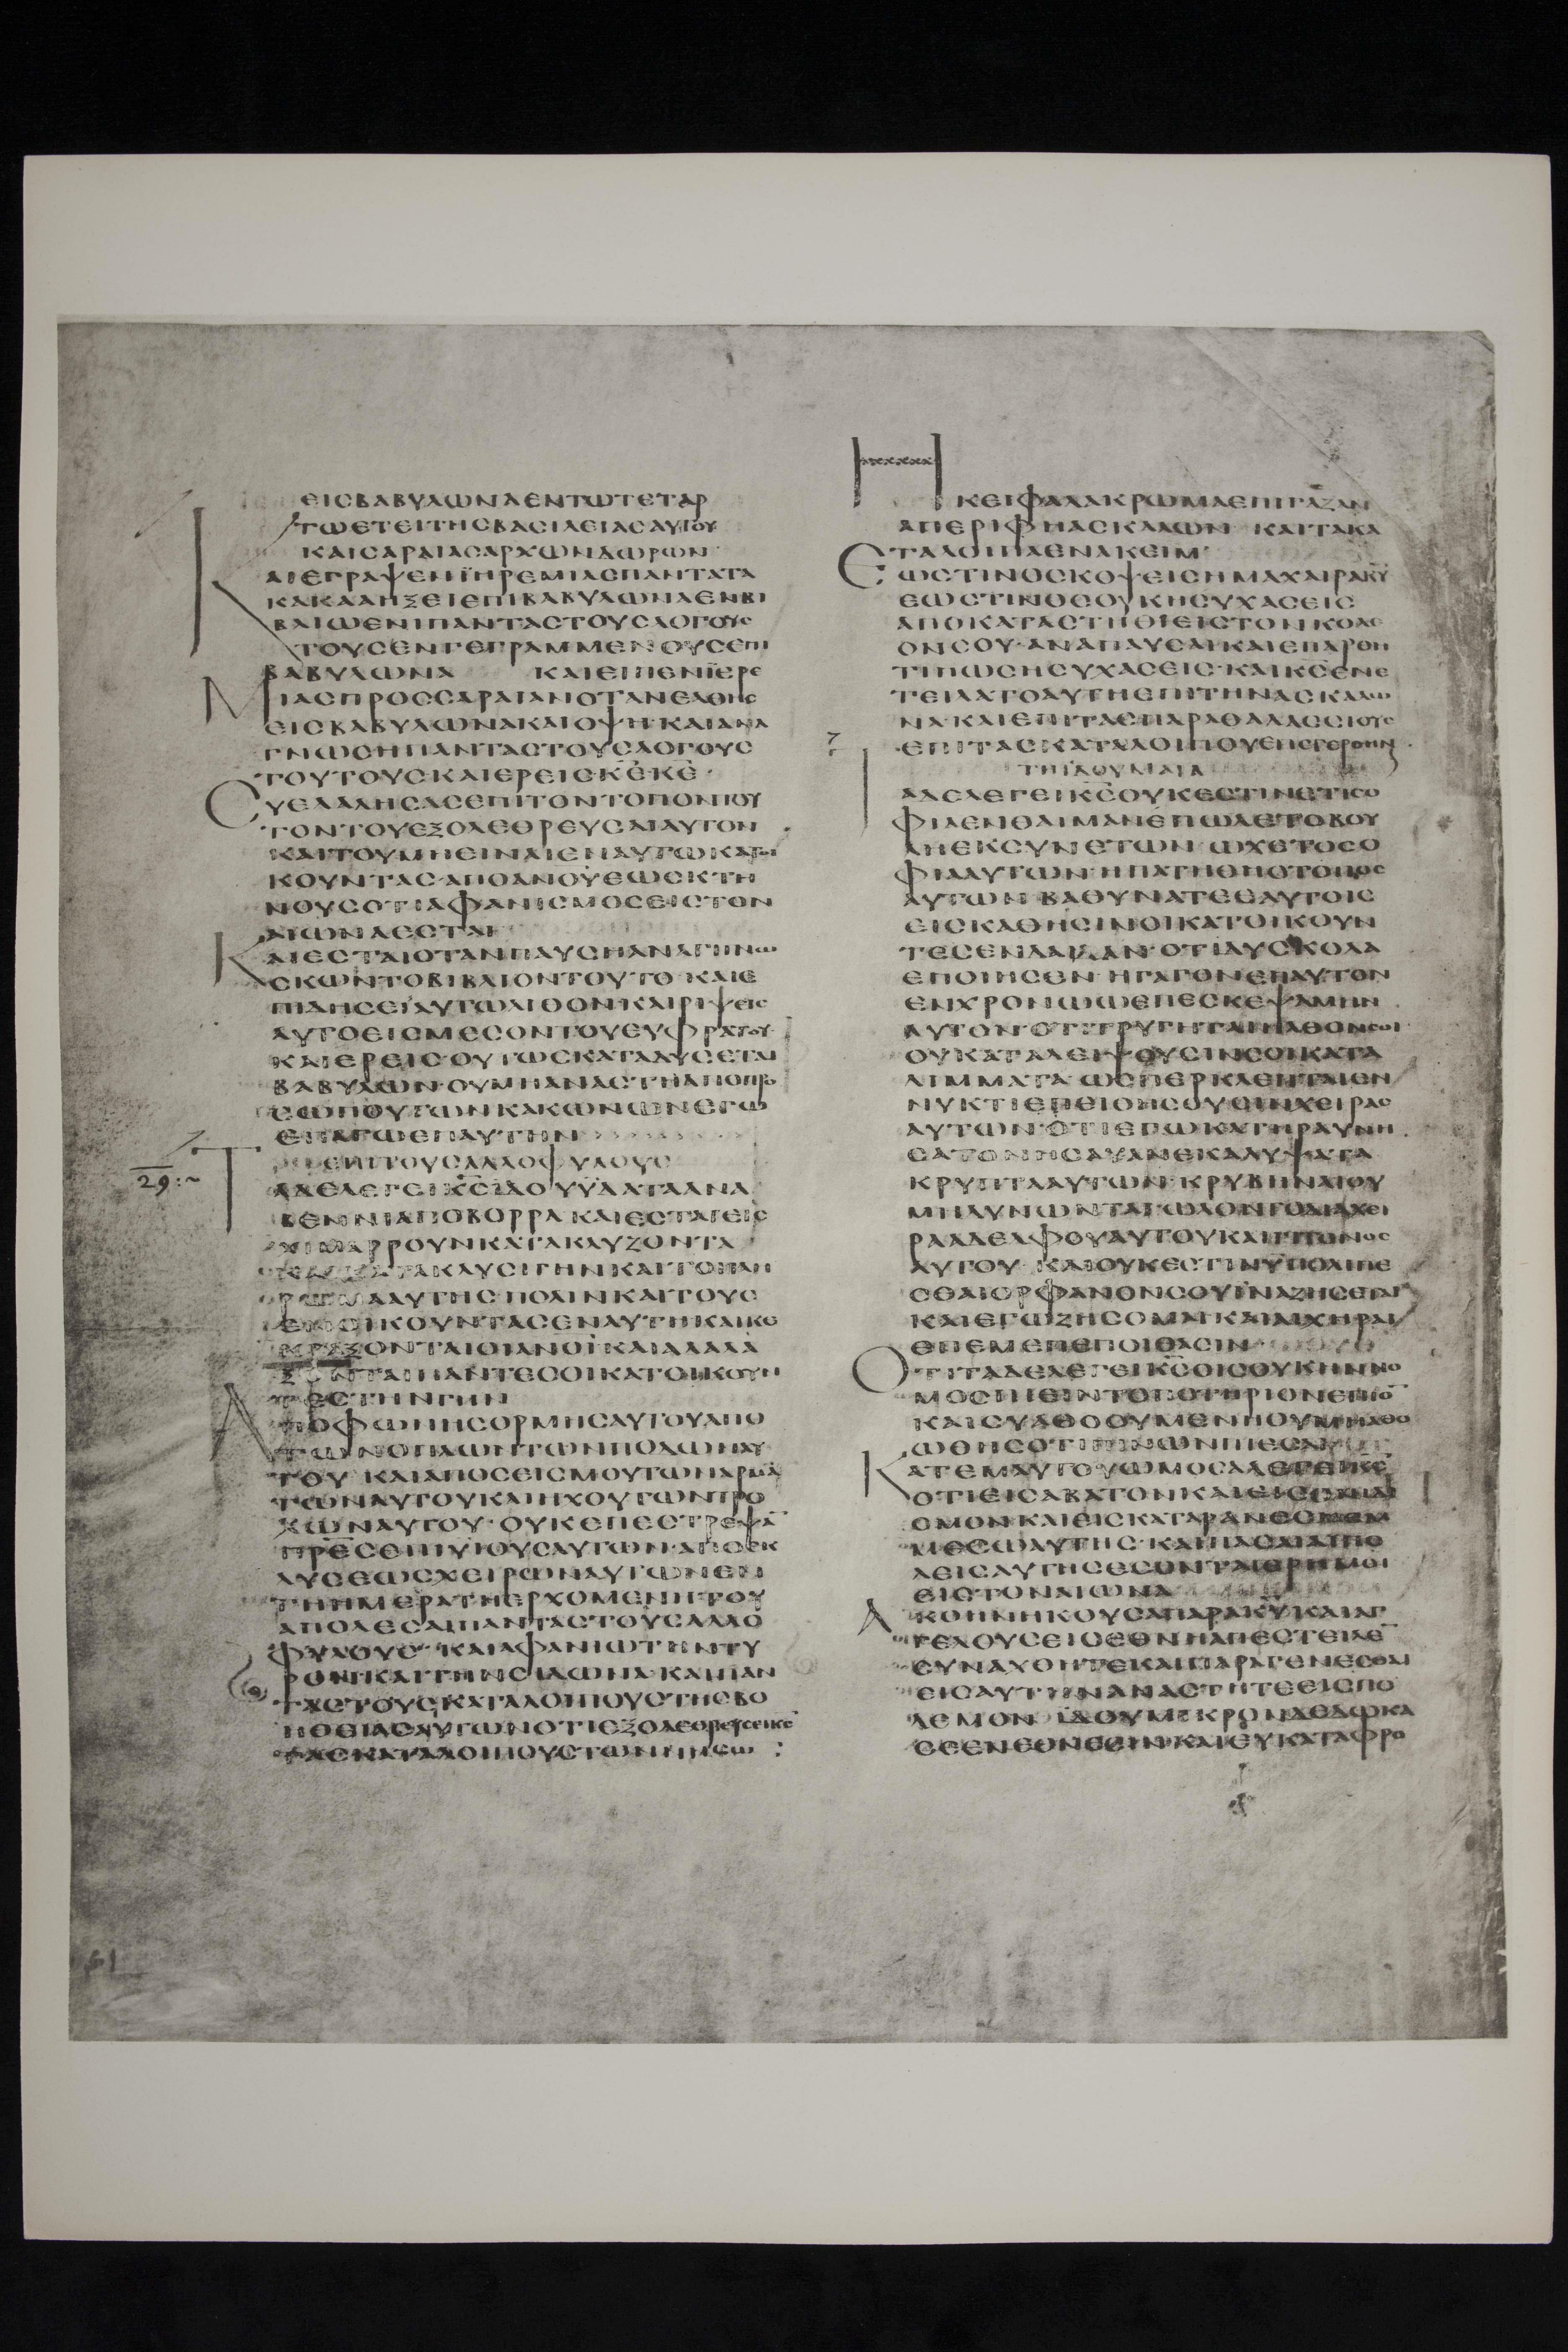 ΕΙϹΒΑΒΥΛΩΝΑΕΝΤΩΤΕΤΑΡ
ΤΩΕΤΕΙΤΗϹΒΑϹΙΛΕΙΑϹΑΥΤΟΥ
ΚΑΙϹΑΡΑΙΑϹΑΡΧΩΝΔΩΡΩΝ
ΚΑΙΕΓΡΑΨΕΝΪΗΡΕΜΙΑϹΠΑΝΤΑΤΑ
ΚΑΚΑΑΗΞΕΙΕΠΙΒΑΒΥΛΩΝΑΕΝΒΙ
ΒΛΙΩΕΝΙΠΑΝΤΑϹΤΟΥϹΛΟΓΟΥϹ
ΤΟΥϹΕΝΓΕΓΡΑΜΜΕΝΟΥϹΕΠΙ
ΒΑΒΥΛΩΝΑ ΚΑΙΕΙΠΕΝΪΕΡΕ
ΜΙΑϹΠΡΟϹϹΑΡΑΙΑΝΟΤΑΝΕΛΘΗϹ
ΕΙϹΒΑΒΥΛΩΝΑΚΑΙΟΨΗΚΑΙΑΝΑ
ΓΝΩϹΗΠΑΝΤΑϹΤΟΥϹΛΟΓΟΥϹ
ΤΟΥΤΟΥϹΚΑΙΕΡΕΙϹΚ̅Ε̅Κ̅Ε̅
ϹΥΕΛΑΛΗϹΑϹΕΠΙΤΟΝΤΟΠΟΝΤΟΥ
ΤΟΝΤΟΥΕΞΟΛΕΘΡΕΥϹΑΙΑΥΤΟΝ
ΚΑΙΤΟΥΜΗΕΙΝΑΙΕΝΑΥΤΩΚΑΤΟΙ
ΚΟΥΝΤΑϹΑΠΟΑΝΟΥΕΩϹΚΤΗ
ΝΟΥϹΟΤΙΑΦΑΝΙϹΜΟϹΕΙϹΤΟΝ
ΑΙΩΝΑΕϹΤΑΙ
ΚΑΙΕϹΤΑΙΟΤΑΝΠΑΥϹΗΑΝΑΓΙΝΩ
ϹΚΩΝΤΟΒΙΒΛΙΟΝΤΟΥΤΟ ΚΑΙΕ
ΠΙΔΗϹΕΙϹΑΥΤΩΛΙΘΟΝΚΑΙΡΙΨΕΙϹ
ΑΥΤΟΕΙϹΜΕϹΟΝΤΟΥΕΥΦΡΑΤΟΥ
ΚΑΙΕΡΕΙϹ·ΟΥΤΩϹΚΑΤΑΔΥϹΕΤΑΙ
ΒΑΒΥΛΩΝ·ΟΥΜΗΑΝΑϹΤΗΑΠΟΠΡΟ
ϹΩΠΟΥΤΩΝΚΑΚΩΝΩΝΕΓΩ
ΕΠΑΓΩΕΠΑΥΤΗΝ
ΕΠΙΤΟΥϹΑΛΛΟΦΥΛΟΥϹ
29:~
ΤΑΔΕΛΕΓΕΙΚ̅Ϲ̅ΙΔΟΥΥΔΑΤΑΑΝΑ
ΒΕΝΝΙΑΠΟΒΟΡΡΑ ΚΑΙΕϹΤΑΙΕΙϹ
ΧΙΜΑΡΡΟΥΝΚΑΤΑΚΛΥΖΟΝΤΑ
ΚΑΙΚΑΤΑΚΛΥϹΙΓΗΝΚΑΙΤΟΠΛΗ
ΡΩΜΑΑΥΤΗϹ ΠΟΛΙΝΚΑΙΤΟΥϹ
ΕΝΟΙΚΟΥΝΤΑϹΕΝΑΥΤΗΚΑΙΚΕ
ΚΡΑΞΟΝΤΑΙΟΙΑΝΟΙΚΑΙΑΛΑΛΑ
ΞΟΝΤΑΙΠΑΝΤΕϹΟΙΚΑΤΟΙΚΟΥΝ
ΤΕϹΤΗΝΓΗΝ
ΑΠΟΦΩΝΗϹΟΡΜΗϹΑΥΤΟΥΑΠΟ
ΤΩΝΟΠΛΩΝΤΩΝΠΟΔΩΝΑΥ
ΤΟΥ ΚΑΙΑΠΟϹΕΙϹΜΟΥΤΩΝΑΡΜΑ
ΤΩΝΑΥΤΟΥΚΑΙΗΧΟΥΤΩΝΤΡΟ
ΧΩΝΑΥΤΟΥ·ΟΥΚΕΠΕϹΤΡΕΨΑ̅
ΠΡΕϹΕΠΙΥΙΟΥϹΑΥΤΩΝ·ΑΠΟΕΚ
ΛΥϹΕΩϹΧΕΙΡΩΝΑΥΤΩΝΕΝ
ΤΗΗΜΕΡΑΤΗΕΡΧΟΜΕΝΗΤΟΥ
ΑΠΟΛΕϹΑΙΠΑΝΤΑϹΤΟΥϹΑΛΛΟ
ΦΥΛΟΥϹ ΚΑΙΑΦΑΝΙΩΤΗΝΤΥ
ΡΟΝΚΑΙΤΗΝϹΙΔΩΝΑ·ΚΑΙΠΑΝ
ΤΑϹΤΟΥϹΚΑΤΑΛΟΙΠΟΥϹΤΗϹΒΟ
ΗΘΕΙΑϹΑΥΤΩΝΟΤΙΕΞΟΛΕΘΡΕΥϹΕΙΚ̅Ϲ̅
ΤΟΥϹΚΑΤΑΛΟΙΠΟΥϹΤΩΝΝΗϹΩ̅
61
ΗΚΕΙΦΑΛΑΚΡΩΜΑΕΠΙΓΑΖΑΝ
ΑΠΕΡΙΦΗΑϹΚΑΛΩΝ ΚΑΙΤΑΚΑ
ΤΑΛΟΙΠΑΕΝΑΚΕΙΜ
ΕΩϹΤΙΝΟϹΚΟΨΕΙϹΗΜΑΧΑΙΡΑΚ̅Υ̅
ΕΩϹΤΙΝΟϹΟΥΚΗϹΥΧΑϹΕΙϹ
ΑΠΟΚΑΤΑϹΤΗΘΙΕΙϹΤΟΝΚΟΛΕ
ΟΝϹΟΥ·ΑΝΑΠΑΥϹΑΙΚΑΙΕΠΑΡΘΗ
ΤΙΠΩϹΗϹΥΧΑϹΕΙϹ·ΚΑΙΚ̅Ϲ̅ΕΝΕ
ΤΕΙΛΑΤΟΑΥΤΗΕΠΙΤΗΝΑϹΚΑΛΩ
ΝΑ·ΚΑΙΕΠΙΤΑϹΠΑΡΑΘΑΛΑϹϹΙΟΥϹ
ΕΠΙΤΑϹΚΑΤΑΛΟΙΠΟΥΕΠΕΓΕΡΘΗΝ
ΤΗΙΔΟΥΜΑΙΑ
ΤΑΔΕΛΕΓΕΙΚ̅Ϲ̅ΟΥΚΕϹΤΙΝΕΤΙϹΟ
ΦΙΑΕΝΘΑΙΜΑΝΕΠΩΛΕΤΟΒΟΥ
ΛΗΕΚϹΥΝΕΤΩΝ·ΩΧΕΤΟϹΟ
ΦΙΑΑΥΤΩΝΗΠΑΤΗΘΗΟΤΟΠΟϹ
ΑΥΤΩΝ·ΒΑΘΥΝΑΤΕΕΑΥΤΟΙϹ
ΕΙϹΚΑΘΗϹΙΝΟΙΚΑΤΟΙΚΟΥΝ
ΤΕϹΕΝΔΑΙΔΑΝ·ΟΤΙΔΥϹΚΟΛΑ
ΕΠΟΙΗϹΕΝ·ΗΓΑΓΟΝΕΠΑΥΤΟΝ
ΕΝΧΡΟΝΩΩΕΠΕϹΚΕΨΑΜΗΝ
ΑΥΤΟΝΟΤΙΤΡΥΓΗΤΑΙΗΛΘΟΝϹΟΙ
ΟΥΚΑΤΑΛΕΙΨΟΥϹΙΝϹΟΙΚΑΤΑ
ΛΙΜΜΑΤΑ ΩϹΠΕΡΚΛΕΠΤΑΙΕΝ
ΝΥΚΤΙΕΠΙΘΗϹΟΥϹΙΝΧΕΙΡΑϹ
ΑΥΤΩΝ·ΟΤΙΕΓΩΚΑΤΗΡΑΥΝΗ
ϹΑΤΟΝΗϹΑΥΑΝΕΚΑΛΥΨΑΤΑ
ΚΡΥΠΤΑΑΥΤΩΝ·ΚΡΥΒΗΝΑΙΟΥ
ΜΗΔΥΝΩΝΤΑΙΩΛΟΝΤΟΔΙΑΧΕΙ
ΡΑΑΔΕΛΦΟΥΑΥΤΟΥΚΑΙΓΙΤΟΝΟϹ
ΑΥΤΟΥ ΚΑΙΟΥΚΕϹΤΙΝΥΠΟΛΙΠΕ
ϹΘΑΙΟΡΦΑΝΟΝϹΟΥΙΝΑΖΗϹΕΤΑΙ
ΚΑΙΕΓΩΖΗϹΟΜΑΙΚΑΙΑΙΧΗΡΑΙ
ΕΠΕΜΕΠΕΠΟΙΘΑϹΙΝ
ΟΤΙΤΑΔΕΛΕΓΕΙΚ̅Ϲ̅ΟΙϹΟΥΚΗΝΝΟ
ΜΟϹΠΙΕΙΝΤΟΠΟΤΗΡΙΟΝΕΠΙΟ̅
ΚΑΙϹΥΑΘΟΟΥΜΕΝΗΟΥΜΗΑΘΟ
ΩΘΗϹΟΤΙΠΙΝΩΝΠΙΕϹΑΙ
ΚΑΤΕΜΑΥΤΟΥΩΜΟϹΑΛΕΓΕΙΚ̅Ϲ̅
ΟΤΙΕΙϹΑΒΑΤΟΝΚΑΙΕΙϹ
ϹΜΟΝΚΑΙΕΙϹΚΑΤΑΡΑΝΕϹΗΕΜ
ΜΕϹΩΑΥΤΗϹ·ΚΑΙΠΑϹΑΙΑΙΠΟ
ΛΕΙϹΑΥΤΗϹΕϹΟΝΤΑΙΕΡΗΜΟΙ
ΕΙϹΤΟΝΑΙΩΝΑ
ΑΚΟΗΝΗΚΟΥϹΑΠΑΡΑΚ̅Υ̅ΚΑΙΑΓ
ΓΕΛΟΥϹΕΙϹΕΘΝΗΑΠΕϹΤΕΙΛΕ̅
ϹΥΝΑΧΘΗΤΕΚΑΙΠΑΡΑΓΕΝΕϹΘΑΙ
ΕΙϹΑΥΤΗΝΑΝΑϹΤΗΤΕΕΙϹΠΟ
ΛΕΜΟΝ ΙΔΟΥΜΙΚΡΟΝΔΕΔΩΚΑ
ϹΕΕΝΕΘΝΕϹΙΝ·ΚΑΙΕΥΚΑΤΑΦΡΟ